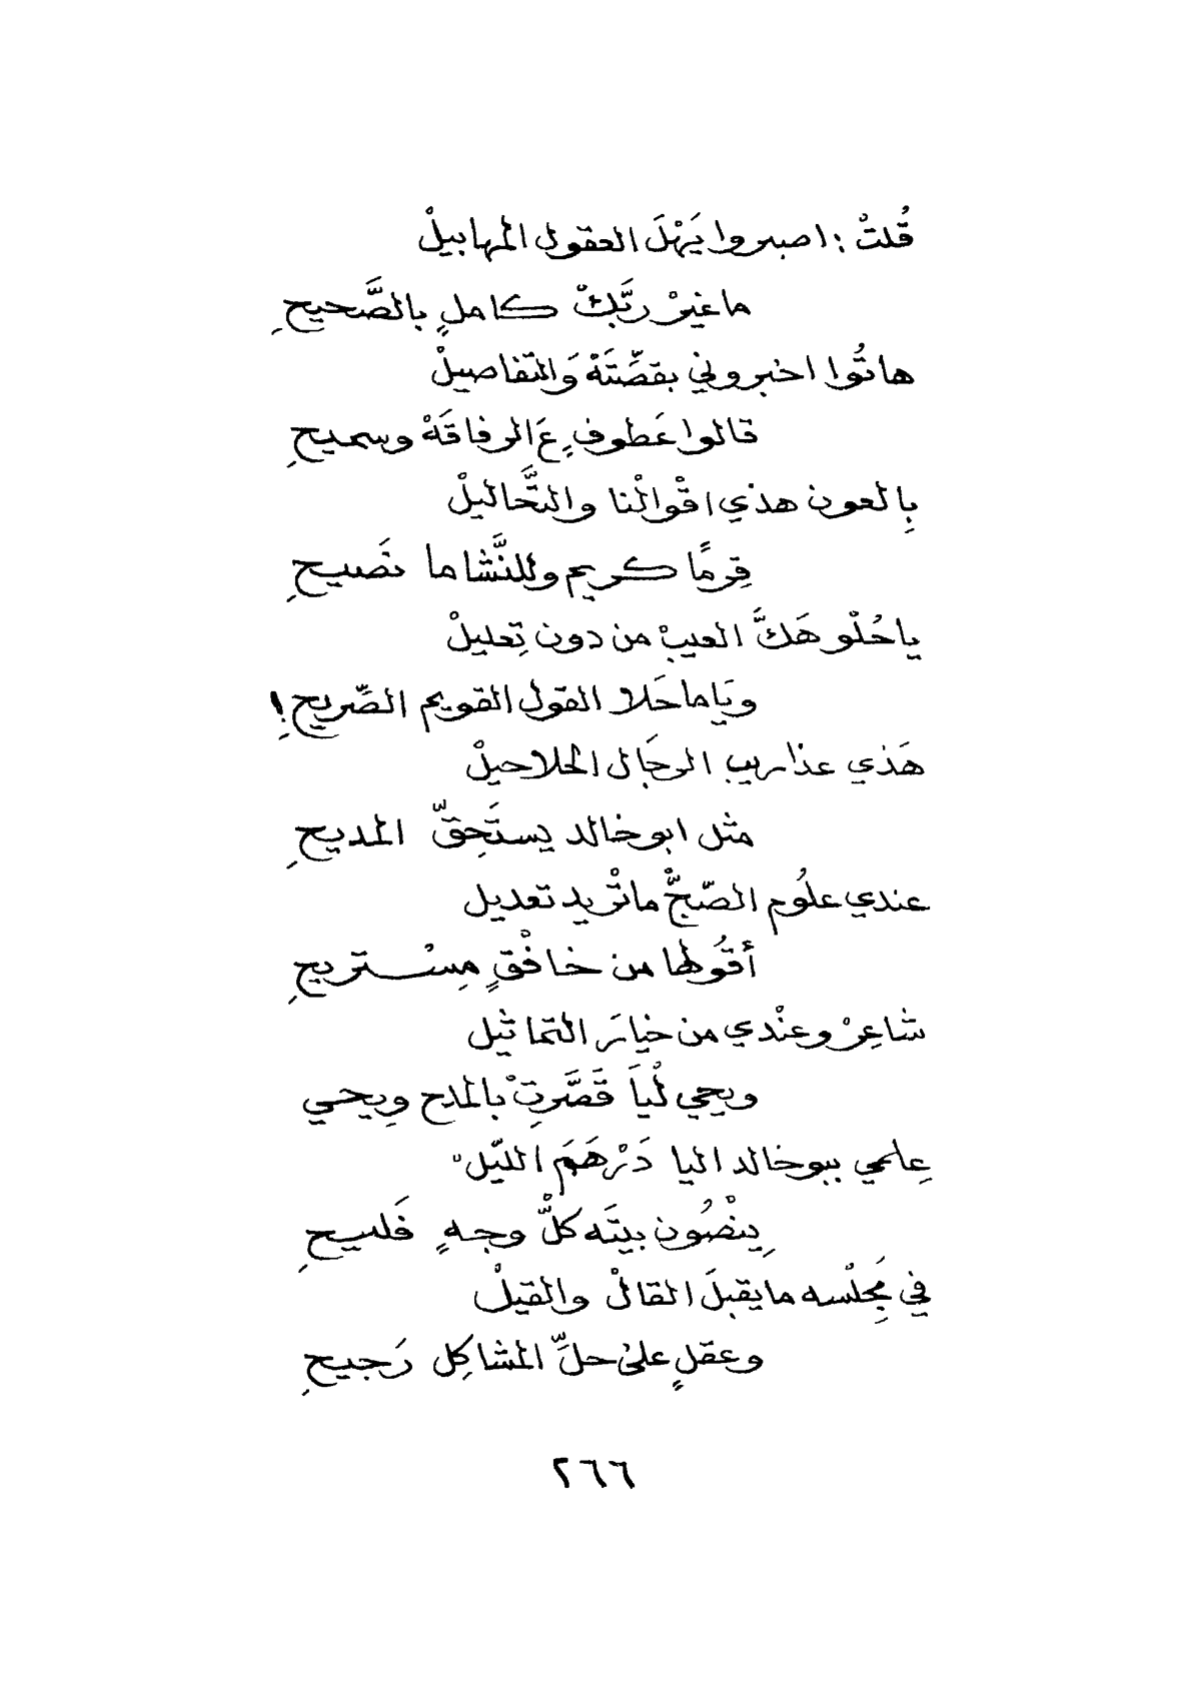 قُلتْ : اصبروا يَهْلَ العقول المهابيلْ
ما غيرْ ربَّكْ كاملٍ بالصَّحيحِ
هاتُوا اخبروني بقصِّتَهْ وَالتفاصيلْ
قالوا عَطوفٍ عَ الرفاقَهْ وسميحِ
بِالعون هذي اقْوالْنا والتَّحاليلْ
قِرمًا كريم وللنَّشاما نصَيحِ
يا حُلْو هَكَّ العيبْ من دون تِعليلْ
ويَاما حَلا القول القويم الصِّريحِ!
هَذي عذاريب الرجَال الحلاحيلْ
مثل ابو خالد يستَحِقّ المديحِ
عندي علُوم الصّجّْ ماتْريد تعديل
أقُولها من خافْقٍ مِسْتريحِ
شاعِرْ وعنْدي من خيارَ التماثيل
ويجي لْيَا قَصَّرتِْ بالمدح وِيحي
عِلمي ببو خالد اليا دَرْهَمَ الليّلْ
يِنْصُون بيتَه كلّْ وجهٍ فَليحِ
في مَجِلْسه ما يقبلَ القالْ والقيلْ
وعقلٍ علىْ حلِّ المشاكِل رَجيحِ
٢٦٦